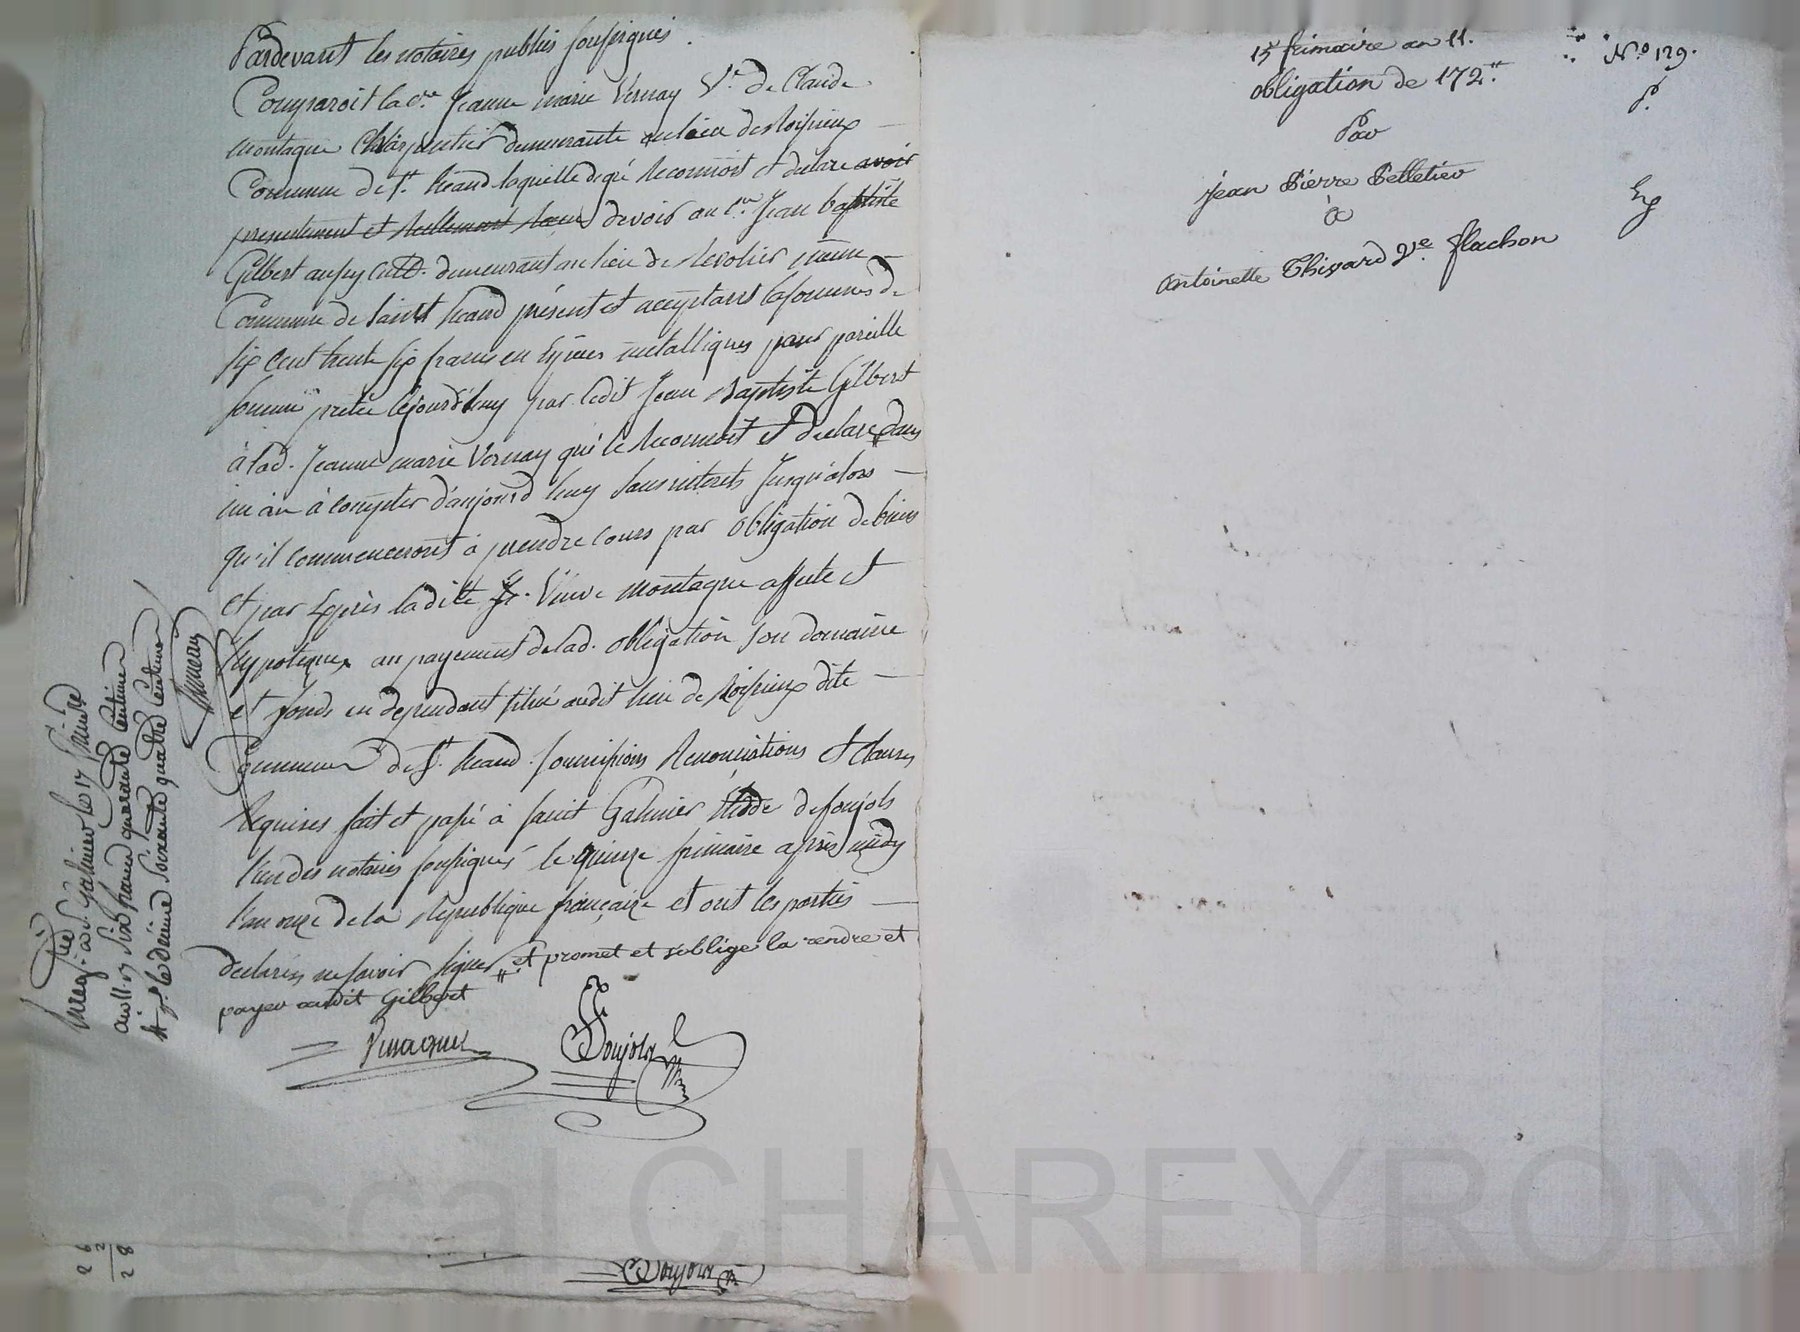 Pardevant les notaires publics soussignés.
Comparoit la c.ne Jeanne marie Vernay V.e de Claude
montagne Charpentier demeurante au lieu de Noisrieux
Commune de St. héand laquelle de gré Reconnoit et declare avoir
presentement et reellement devoir au c.en Jean baptiste
Gilbert aussy cult. demeurant au lieu de Revolier même
Commune de Saint héand présent et acceptant la somme de
six cent trente six francs en Espèces métalliques pour pareille
somme pretée cejourd'huy par ledit Jean Baptiste Gilbert
à lad. Jeanne marie Vernay qui le Reconnoit et declare dans
un an à compter d'aujourd'huy sans interets Jusqu'alors
qu'il commenceront à prendre cours par obligation de biens
et par Exprès la dite Veuve montagne affecte et
hypoteque au payement de lad. obligation son domaine
et fonds en dependant situé audit lieu de Noisrieux dite
Commune de St. héand. soumissions Renonciations et clauses
Requises fait et passé à saint Galmier Etude desoujols
l'un des notaires soussignés le quinze frimaire après midy
l'an onze de la République française et ont les parties
declarées ne savoir signer et promet et s'oblige la rendre et
payer audit Gilbert
Soujols
Enreg. à St. Galmier le 17 frimaire
an 11 Six francs quarante centimes
le dixième Soixante quatre Centimes
2 6
2
2 8
Soujols
15 frimaire an 11.
N.o 129.
obligation de 172.tt
Par
Jean Pierre Pelletier
à
Antoinette Thivard V.e flachon
Pascal CHAREYRON